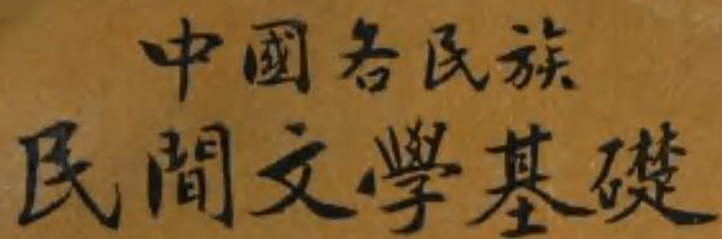 中國各民族
民間文學基礎